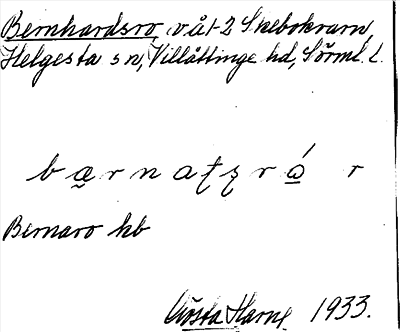 Bernhardsro, v å 1-2 Skebokvarn,
Helgesta sn, Villåttinge hd, Sörml. l.
bærnaʈʂrǻ r
Bernaro kb
Gösta Harne 1933.